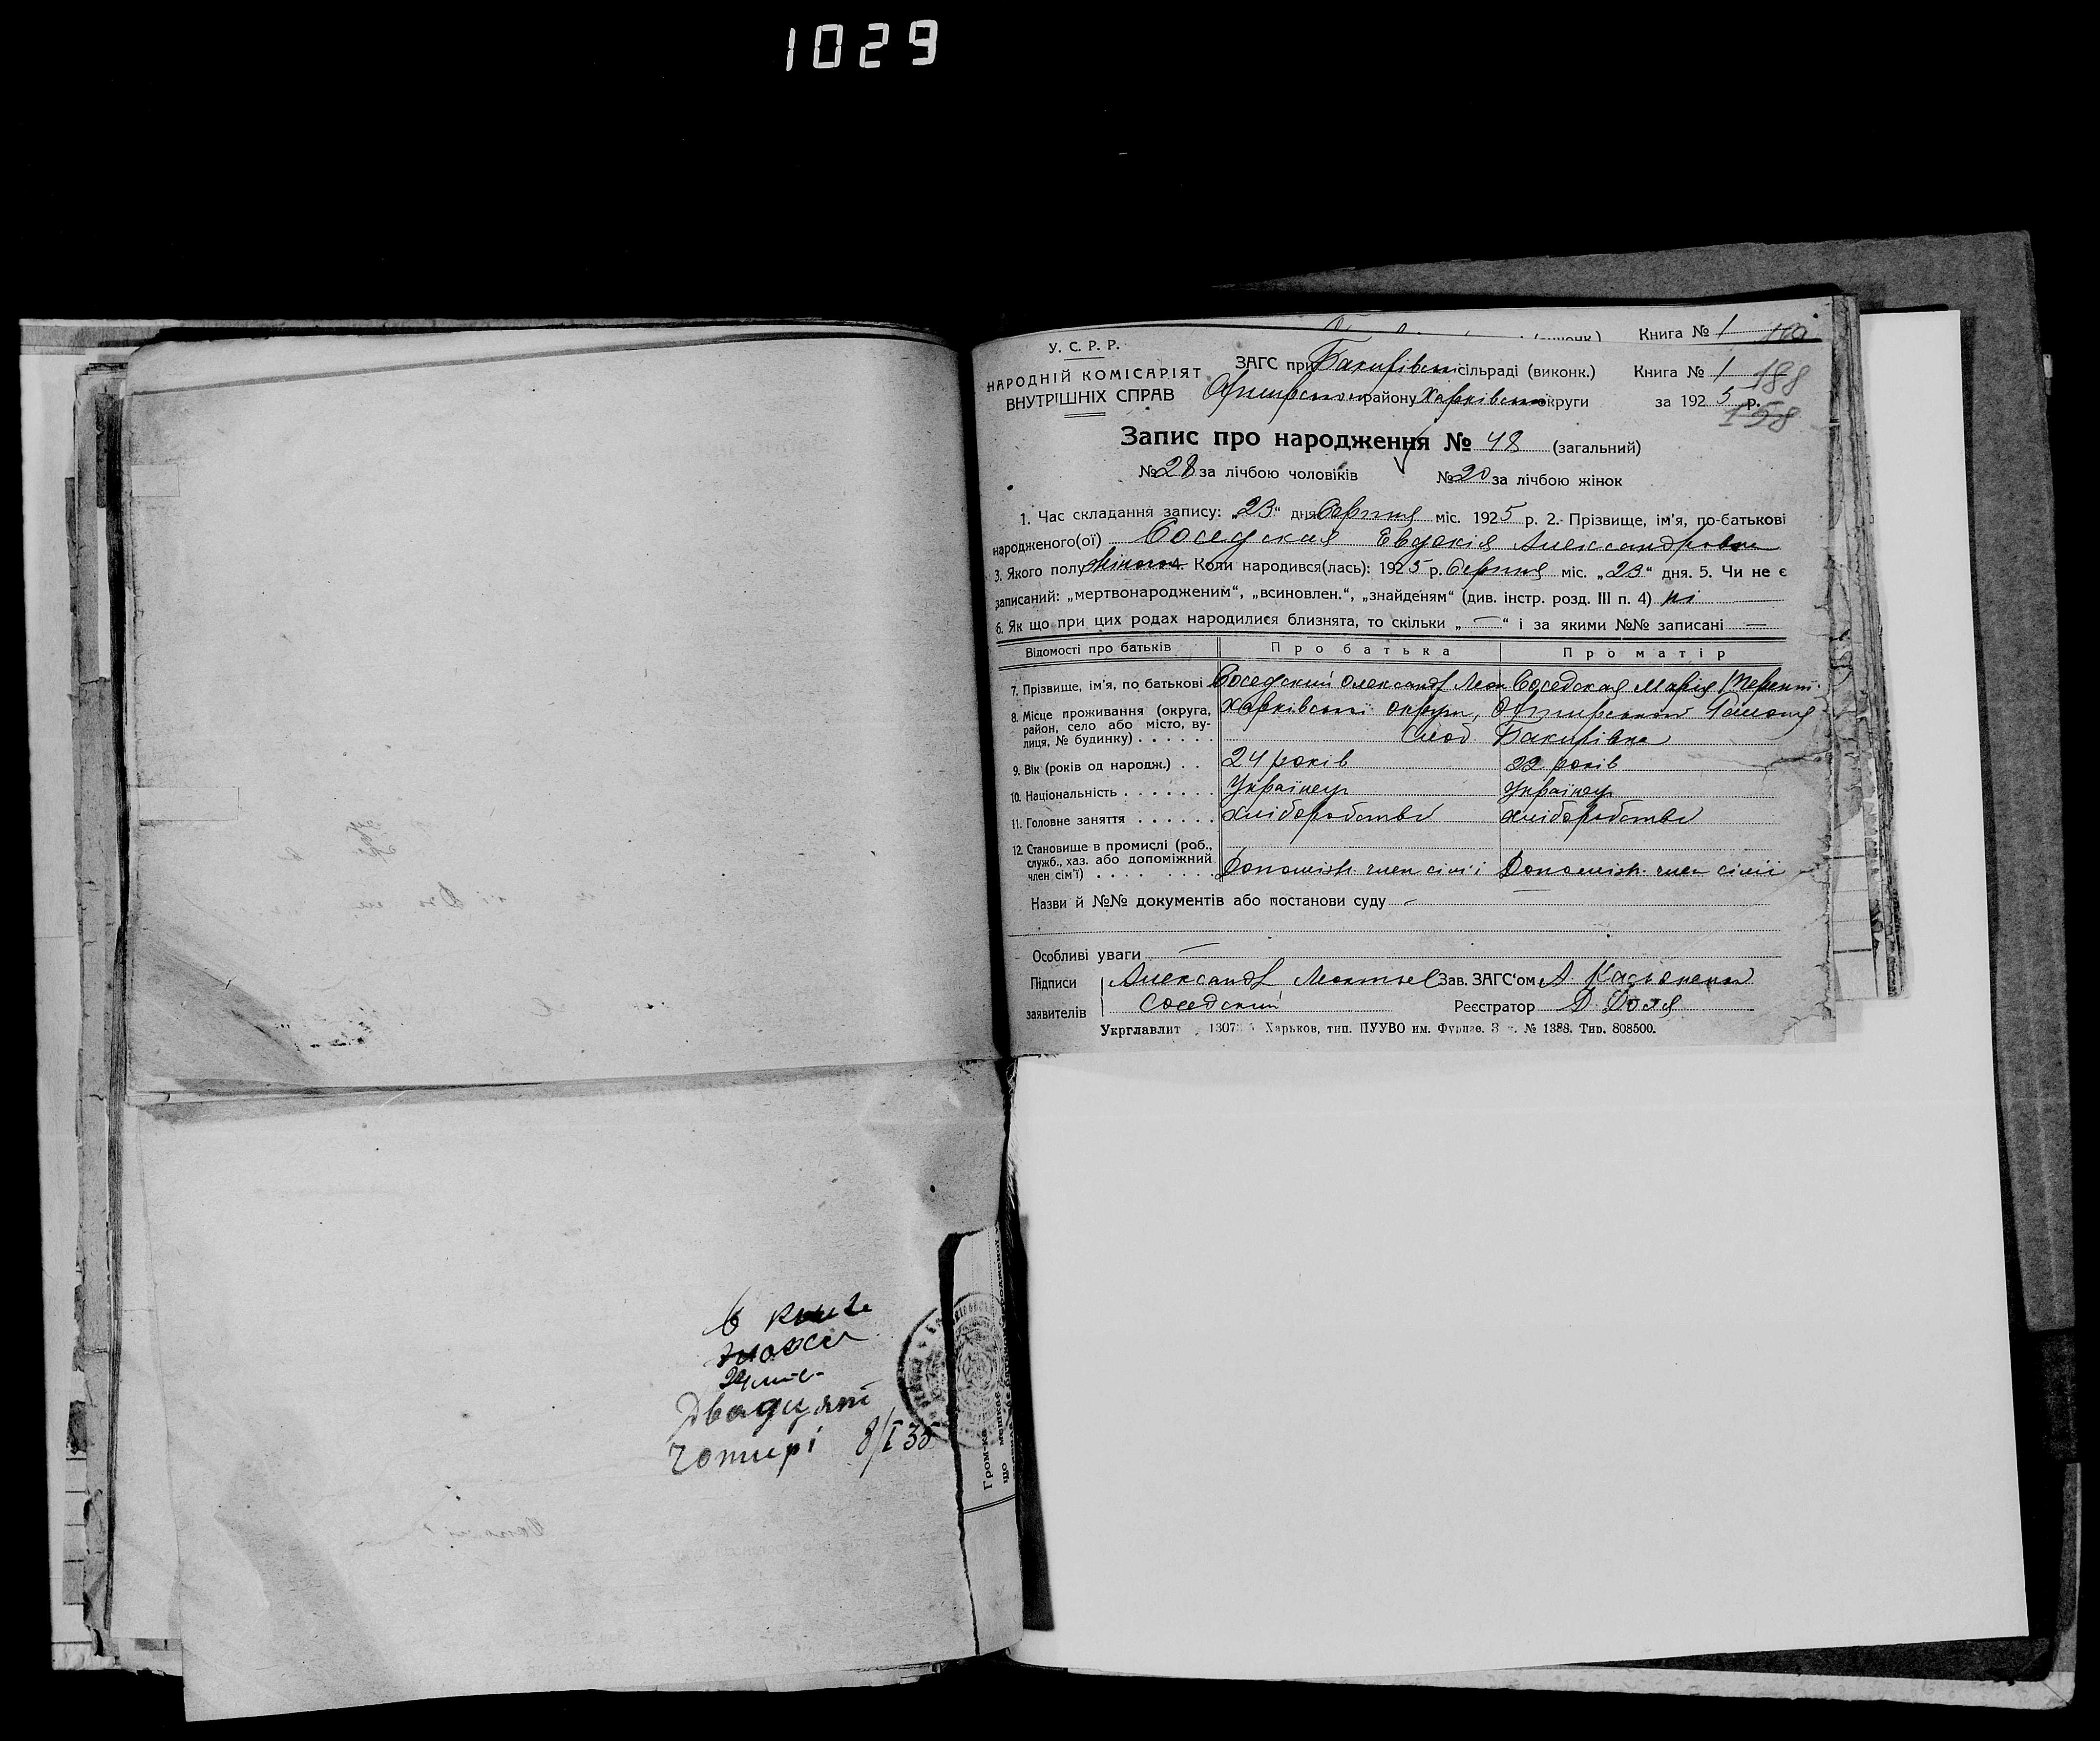 1029
Книга № 1
У. С. Р. Р.
НАРОДНІЙ КОМІСАРІЯТ
ВНУТРІШНІХ СПРАВ
ЗАГС при Бакирівській сільраді (виконк.) Книга № 1 188
району Харківської округи за 1925 р.
158
Запис про народження № 48 (загальний)
№ 28 за лічбою чоловіків № 20 за лічбою жінок
1. Час складання запису: „23“ дня Серпня міс. 1925 р. 2. Прізвище, ім'я, по-батькові
народженого(ої) Соседская Евдокія Александровна
3. Якого полу жіночого 4. Коли народився(лась): 1925 р. Серпня міс. „23“ дня. 5. Чи не є
записаний: „мертвонародженим“, „всиновлен.“, „знайденям“ (див. інстр. розд. III п. 4) ні
6. Як що при цих родах народилися близнята, то скільки „—“ і за якими №№ записані —
Відомості про батьків Про батька Про матір
7. Прізвище, ім'я, по батькові Соседский Олександр Леон Соседская Марія Терент.
8. Місце проживання (округа, Харківської округи,
район, село або місто, ву-
лиця, № будинку) . . . . . . слод. Бакирівка
9. Вік (років од народж.) . . 24 років 22 років
10. Національність . . . . . . . Українец Українец
11. Головне заняття . . . . . . Хліборобство Хліборобство
12. Становище в промислі (роб.,
служб., хаз. або допоміжний
член сім'ї) . . . . . . . . Допоміжн. член сім'ї Допоміжн. член сімії
Назви й №№ документів або постанови суду —
Особливі уваги —
Підписи Александр Леонтьев Зав. ЗАГС'ом А. Касьяненко
заявителів Соседский Реєстратор Д. Доля
Укрглавлит Харьков, тип. ПУУВО им. Фрунзе. № 1388. Тир. 808500.
В книге
24
Двадцят
чотирі 8/I 35
Гром-ка
що мешкає